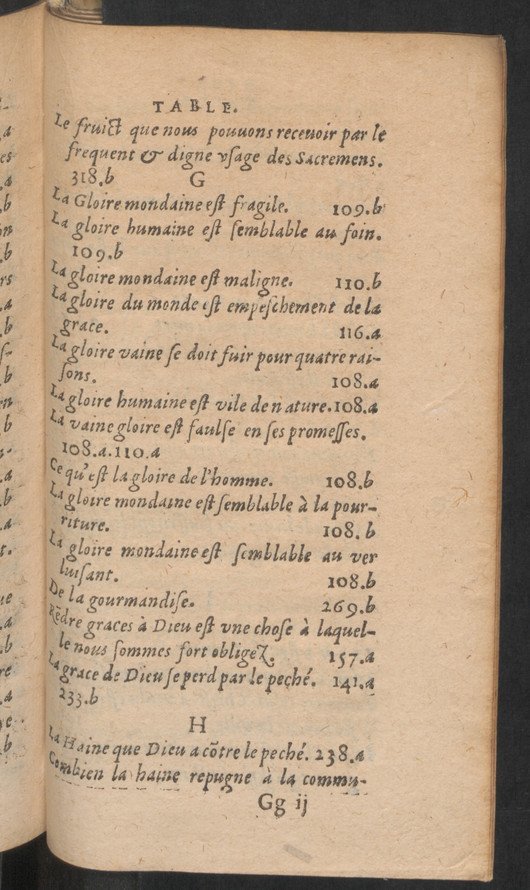 TABLE.
Le fruict que nous pouuons receuoir par le
frequent & digne vsage des Sacremens.
318.b G
La Gloire mondaine est fragile. 109.b
La gloire humaine est semblable au foin.
109.b
La gloire mondaine est maligne. 110.b
La gloire du monde est empeschement de la
grace. 116.a
La gloire vaine se doit fuir pour quatre rai-
sons. 108.a
La gloire humaine est vile de nature. 108.a
La vaine gloire est faulse en ses promesses.
108.a. 110.a
Ce qu'est la gloire de l'homme. 108.b
La gloire mondaine est semblable à la pour-
riture. 108.b
La gloire mondaine est semblable au ver
luisant. 108.b
De la gourmandise. 269.b
Rēdre graces à Dieu est vne chose à laquel-
le nous sommes fort obligez. 157.a
La grace de Dieu se perd par le peché. 141.a
233.b
H
La Haine que Dieu a cōtre le peché. 238.a
Combien la haine repugne à la commu-
Gg ij